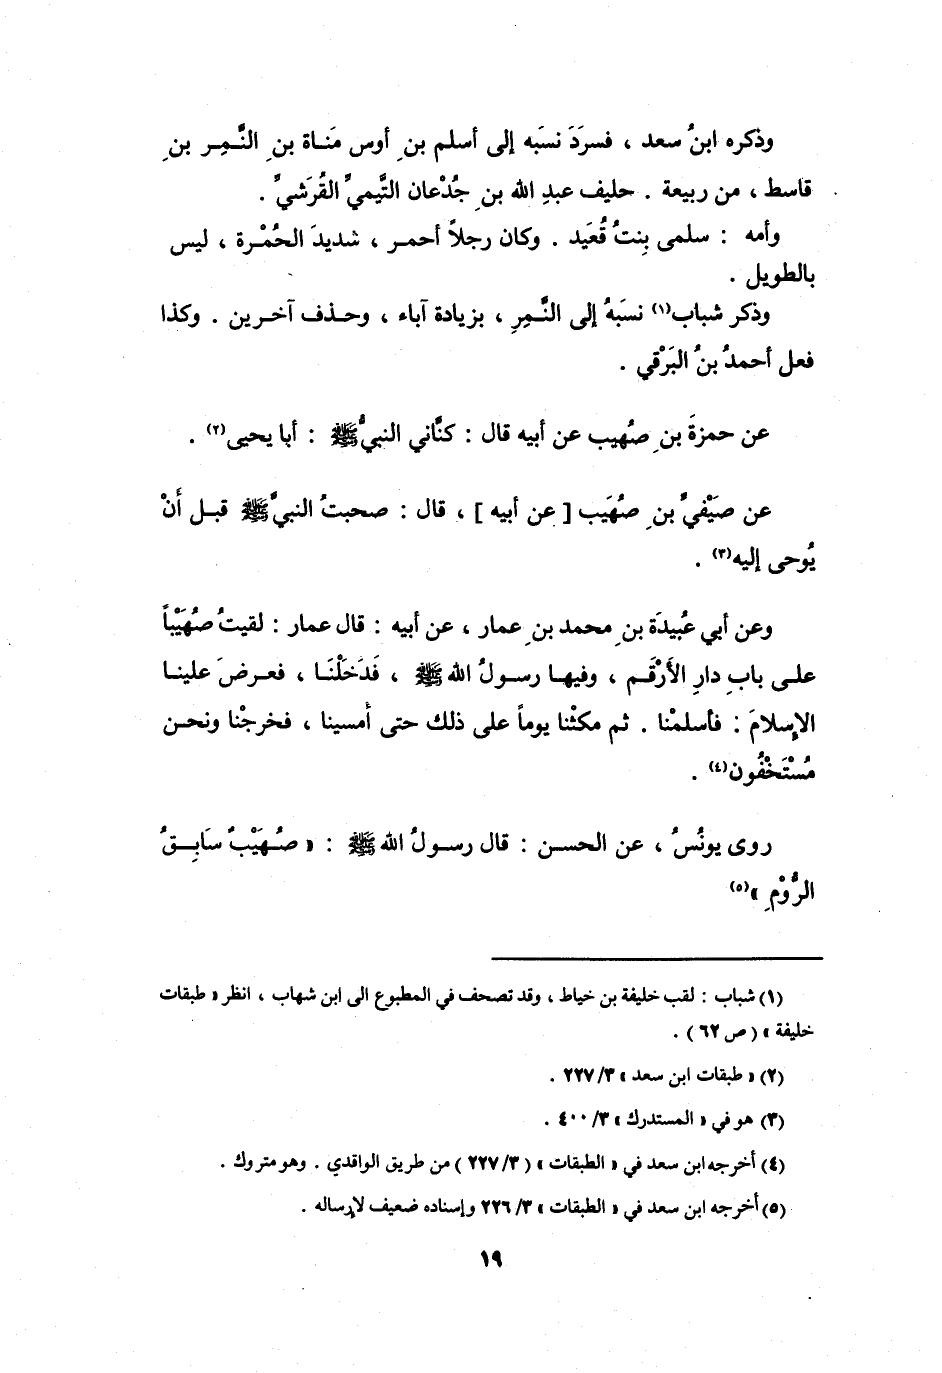 وذكره ابنُ سعد ، فسرَدَ نسَبه إلى أسلم بن ِ أوس مَناة بن ِ النَّمِر بن ِ
قاسط ، من ربيعة . حليف عبدِ الله بن ِ جُدْعان التَّيميِّ القُرَشيِّ .
وأمه : سلمى بِنتُ قُعَيد . وكان رجلاً أحمر ، شديدَ الحُمْرة ، ليس
بالطويل .
وذكر شباب(١) نسَبَهُ إلى النَّمِرِ ، بزيادة آباء ، وحذف آخرين . وكذا
فعل أحمدُ بنُ البَرْقي .
عن حمزةَ بن ِ صُهيب عن أبيه قال : كنَّاني النبيُّ ﷺ : أبا يحيى(٢) .
عن صَيْفيِّ بن ِ صُهَيب [ عن أبيه ] ، قال : صحبتُ النبيَّ ﷺ قبل أَنْ
يُوحى إليه(٣) .
وعن أبي عُبيدَة بن ِ محمد بن ِ عمار ، عن أبيه : قال عمار : لقيتُ صُهَيْباً
على باب دارِ الأَرْقَم ، وفيها رسولُ الله ﷺ ، فَدَخَلْنَا ، فعرضَ علينا
الإسلامَ : فأسلمْنا . ثم مكثْنا يوماً على ذلك حتى أمسينا ، فخرجْنا ونحن
مُسْتَخْفُون(٤) .
روى يونُسُ ، عن الحسن : قال رسولُ الله ﷺ : « صُهَيْبٌ سَابِقُ
الرُّوْمِ »(٥)
(١) شباب : لقب خليفة بن خياط ، وقد تصحف في المطبوع الى ابن شهاب ، انظر « طبقات
خليفة » ( ص ٦٢ ) .
(٢) « طبقات ابن سعد » ٣/ ٢٢٧ .
(٣) هو في « المستدرك » ٣/ ٤٠٠ .
(٤) أخرجه ابن سعد في « الطبقات » ( ٣/ ٢٢٧ ) من طريق الواقدي . وهو متروك .
(٥) أخرجه ابن سعد في « الطبقات » ٣/ ٢٢٦ وإسناده ضعيف لإرساله .
١٩